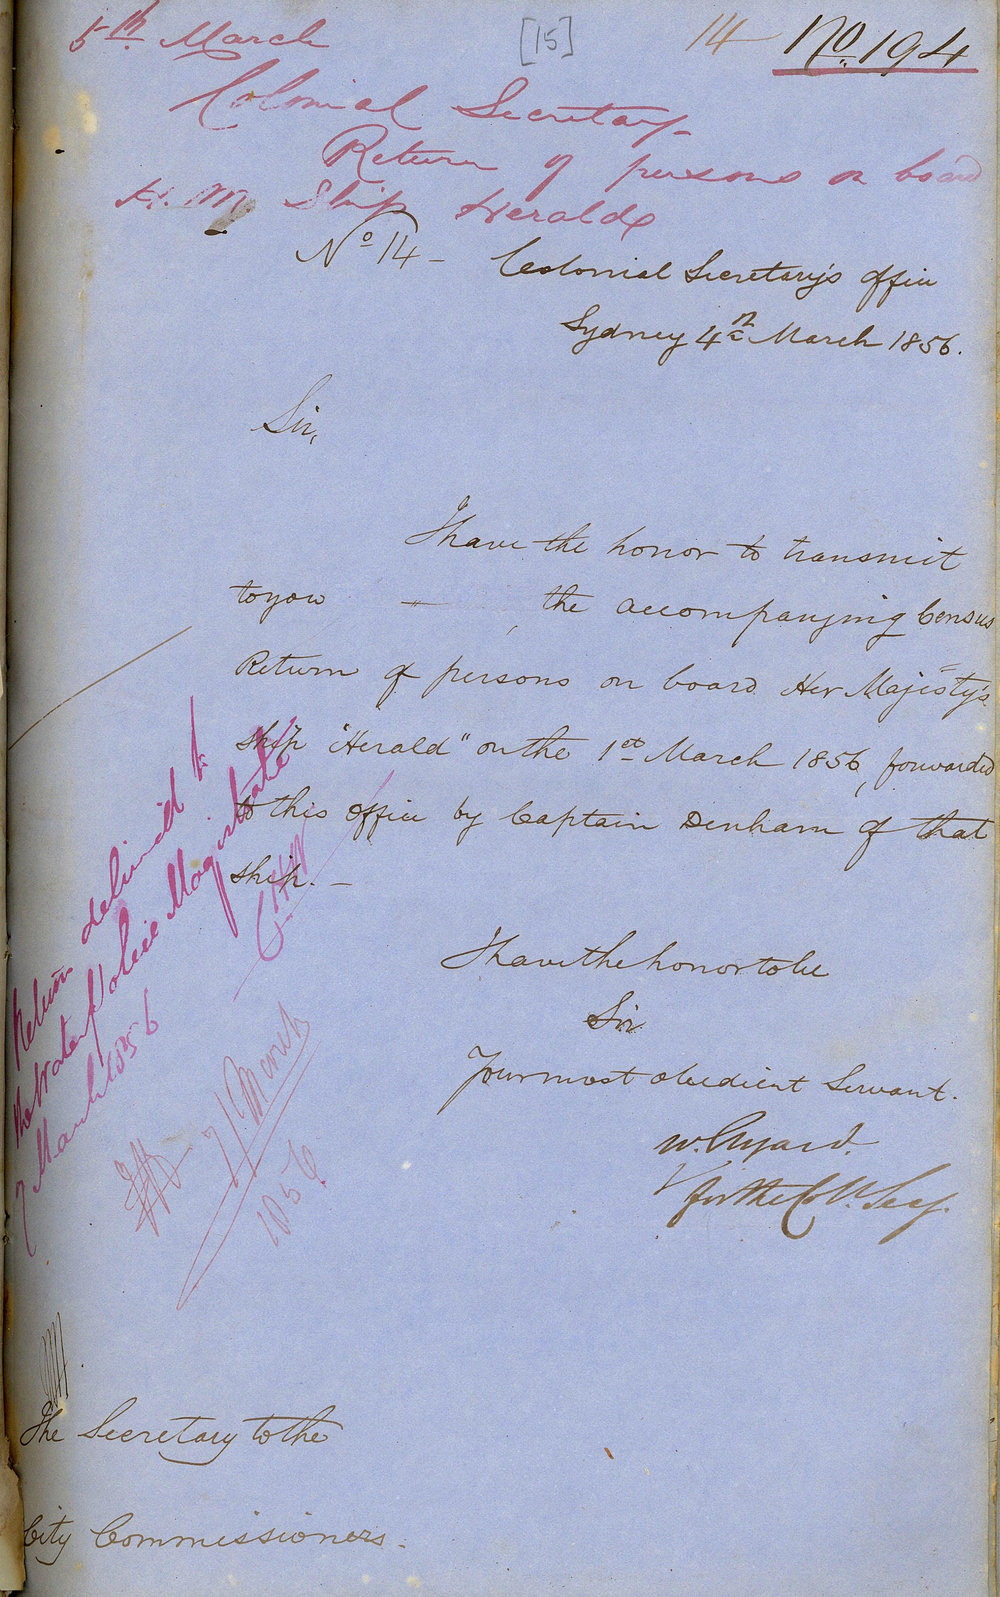 5th March [15] 14 No. 194
Colonial Secretary
Return of persons on board
H. M Ship Herald
No 14 - Colonial Secretary's Office
Sydney 4th March 1856.
Sir,
I have the honor to transmit
to you — the accompanying Census
Return of persons on board Her Majesty's
ship "Herald" on the 1st March 1856, forwarded
to this Office by Captain Denham of that
ship. —
I have the honor to be
Sir
Your most obedient Servant.
W. Elyard.
for the Col. Secy.
Return delivered to
the Water Police Magistrate
7 March 1856
7/ March
1856
The Secretary to the
City Commissioners.